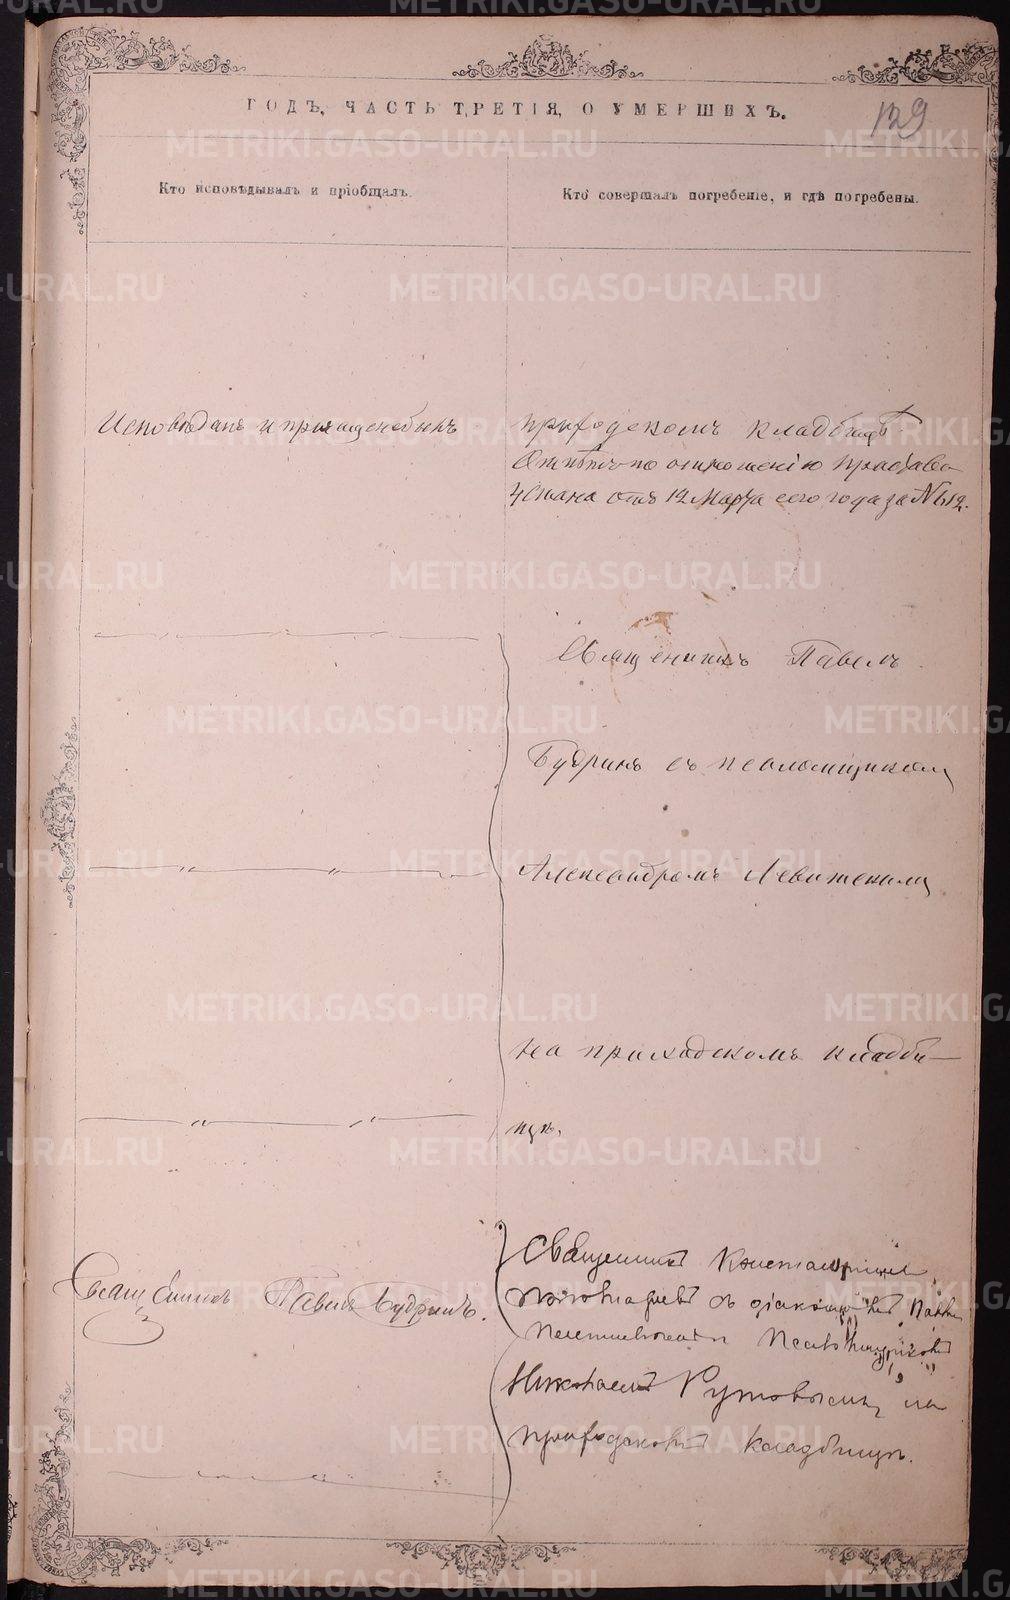 METRIKI.GASO-URAL.RU
ГОДЪ, ЧАСТЬ ТРЕТІЯ, О УМЕРШИХЪ.
129
Кто исповѣдывалъ и пріобщалъ.
Кто совершалъ погребеніе, и гдѣ погребены.
Исповѣданъ и
приходскомъ кладбищѣ
по отношенію пристава
4 стана отъ 12 Марта сего года за № 612.
Священникъ Павелъ
Будринъ съ псаломщикомъ
Александромъ Левитскимъ
на приходскомъ кладби-
щѣ.
Священникъ Павелъ Будринъ.
Священникъ
съ діакономъ
Псаломщикомъ
Николаемъ на
приходскомъ кладбищѣ.